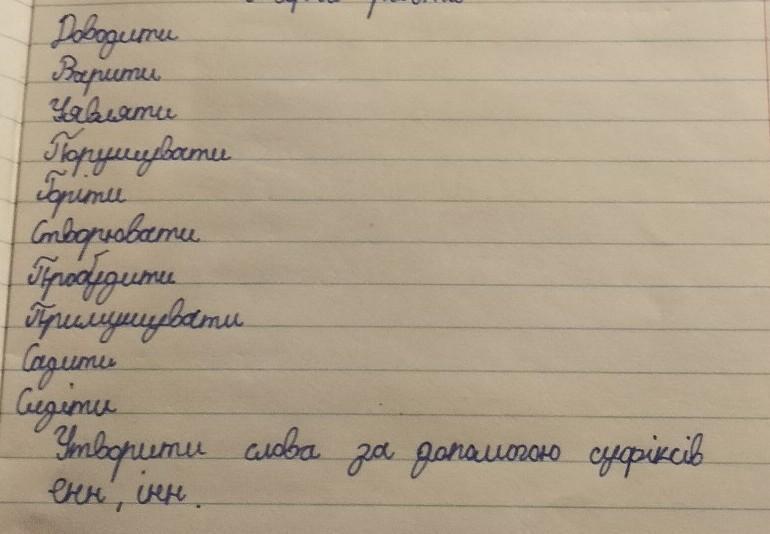 Доводити
Варити
Уявляти
Порушувати
Горіти
Створювати
Пробудити
Примушувати
Садити
Сидіти
Утворити слова за допомогою суфіксів
енн, інн.